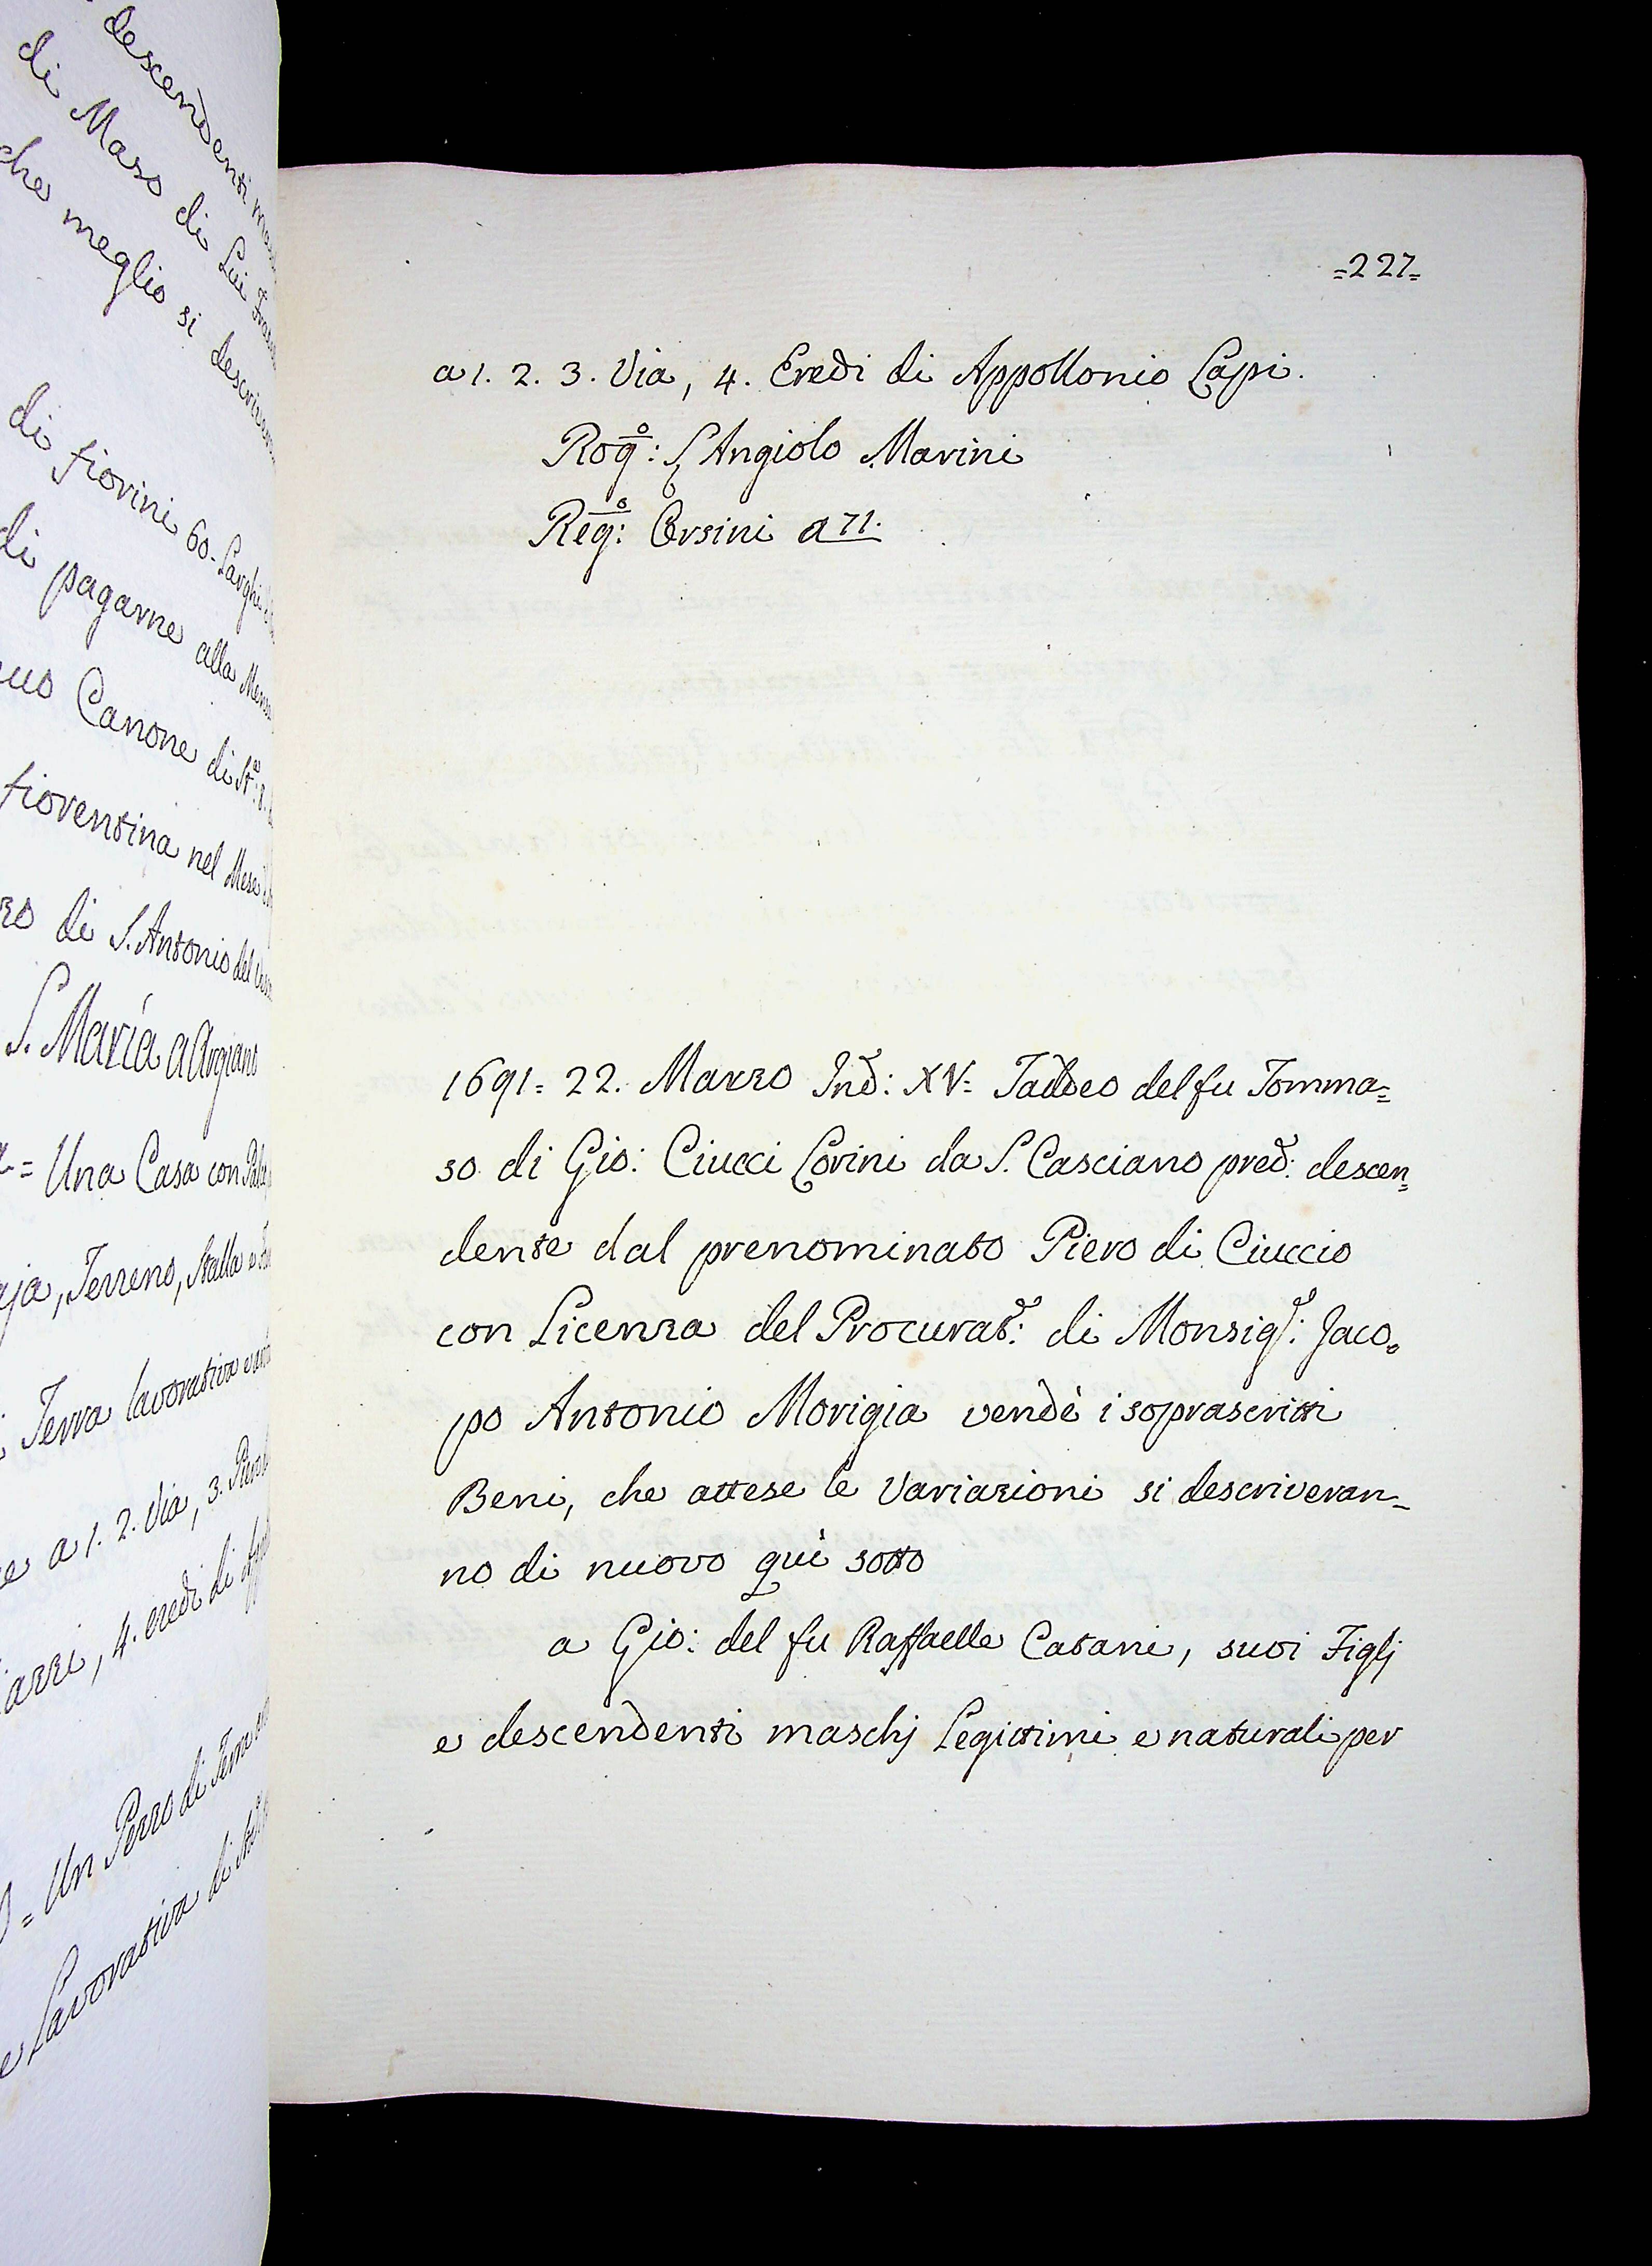 descendenti
di Maso di Lui
che meglio si
di fiorini 60. Larghi
di pagarne alla
Canone di St:
fiorentina nel Mese
di S. Antonio del
S. Maria a Argiano
= Una Casa con
Terreno, Stalla e
Terra lavorativa
a 1. 2. Via, 3.
4. eredi di
= Un Pezzo di Terra
e Lavorativa di
=227=
a 1. 2. 3. Via, 4. Eredi di Appollonio Lapi.
Rogº: S Angiolo Marini
Regº: Orsini a 71.
1691= 22. Marzo Ind: XV= Taddeo del fu Tomma=
so di Gio: Ciucci Lorini da S. Casciano pred: descen=
dente dal prenominato Piero di Ciuccio
con Licenza del Procurat.e: di Monsig.r: Jaco=
po Antonio Morigia vendè i soprascritti
Beni, che attese le Variazioni si descriveran=
no di nuovo qui sotto
a Gio: del fu Raffaelle Catani, suoi Figlj
e descendenti maschj Legittimi e naturali per